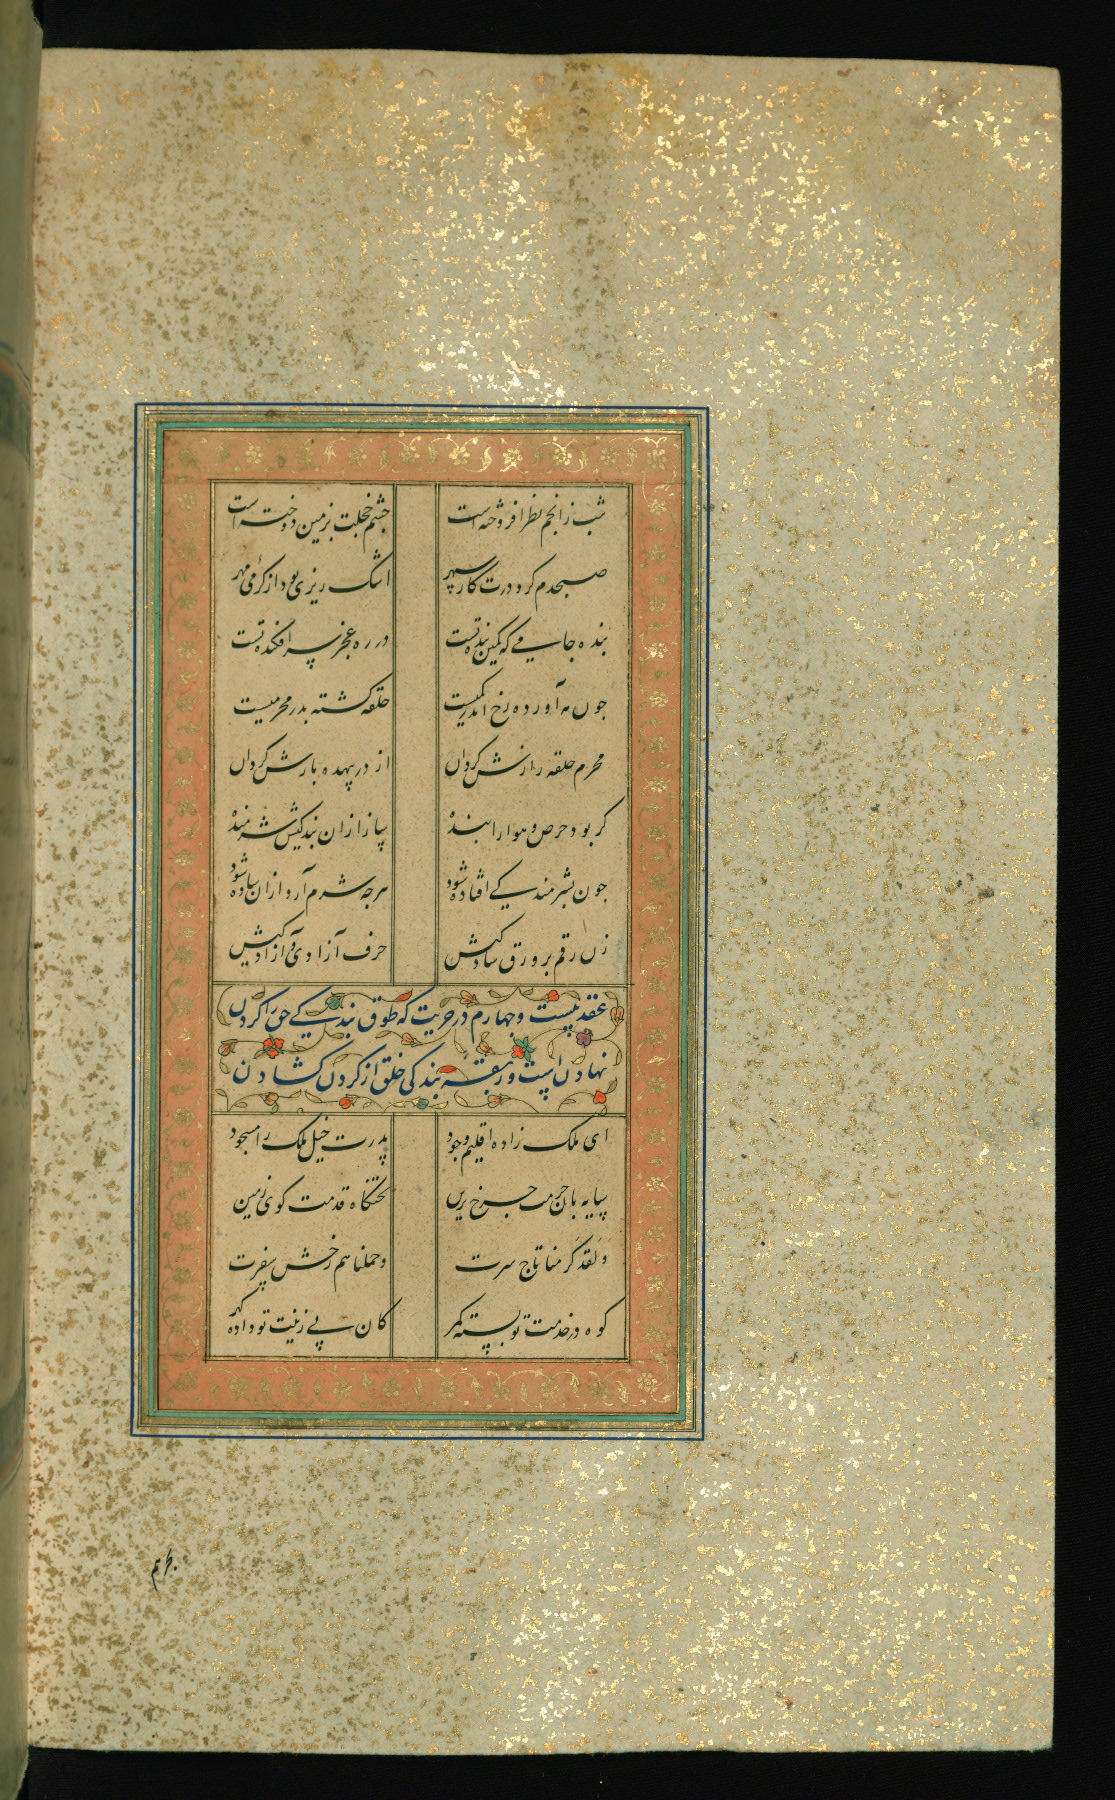 شب ز انجم نظر افروخته است چشم خجلت بزمین دوخته است
صبحدم کرد درت کار سپهر اشک ریزی بود از گرمی مهر
بنده جامی که کمین بنده تست در ره عجز سر افکنده تست
چون مه آورده رخ اندر کمیست حلقه گشته بدر محرمیست
محرم حلقه رازش گردان از در بیهده بازش گردان
گر بود حرص و هوا را بنده ساز ازان بندگیش شرمنده
چون بشرمندگی افتاده شود هرچه شرم آرد ازان ساده شود
زن رقم بر ورق سادگیش حرف آزادی و آزادگیش
عقد بیست و چهارم در حریت که طوق بندگی حق را گردن
نهادن است و ربقه بندگی خلق از گردن گشادن
ای ملک زاده اقلیم وجود پدرت خیل ملک را مسجود
پایه بام حرمت چرخ برین تختگاه قدمت کوی زمین
و لقد کرمنا تاج سرت و حملناهم رخش سفرت
کوه در خدمت تو بسته کمر کان پی زینت تو داده گهر